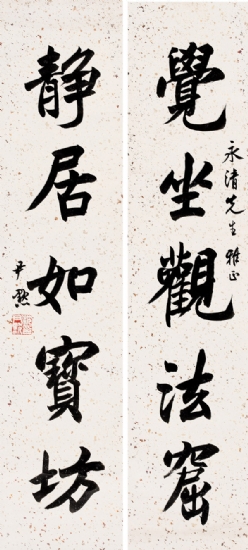 覺坐觀法窟
永清先生雅正
靜居如寶坊
尹默